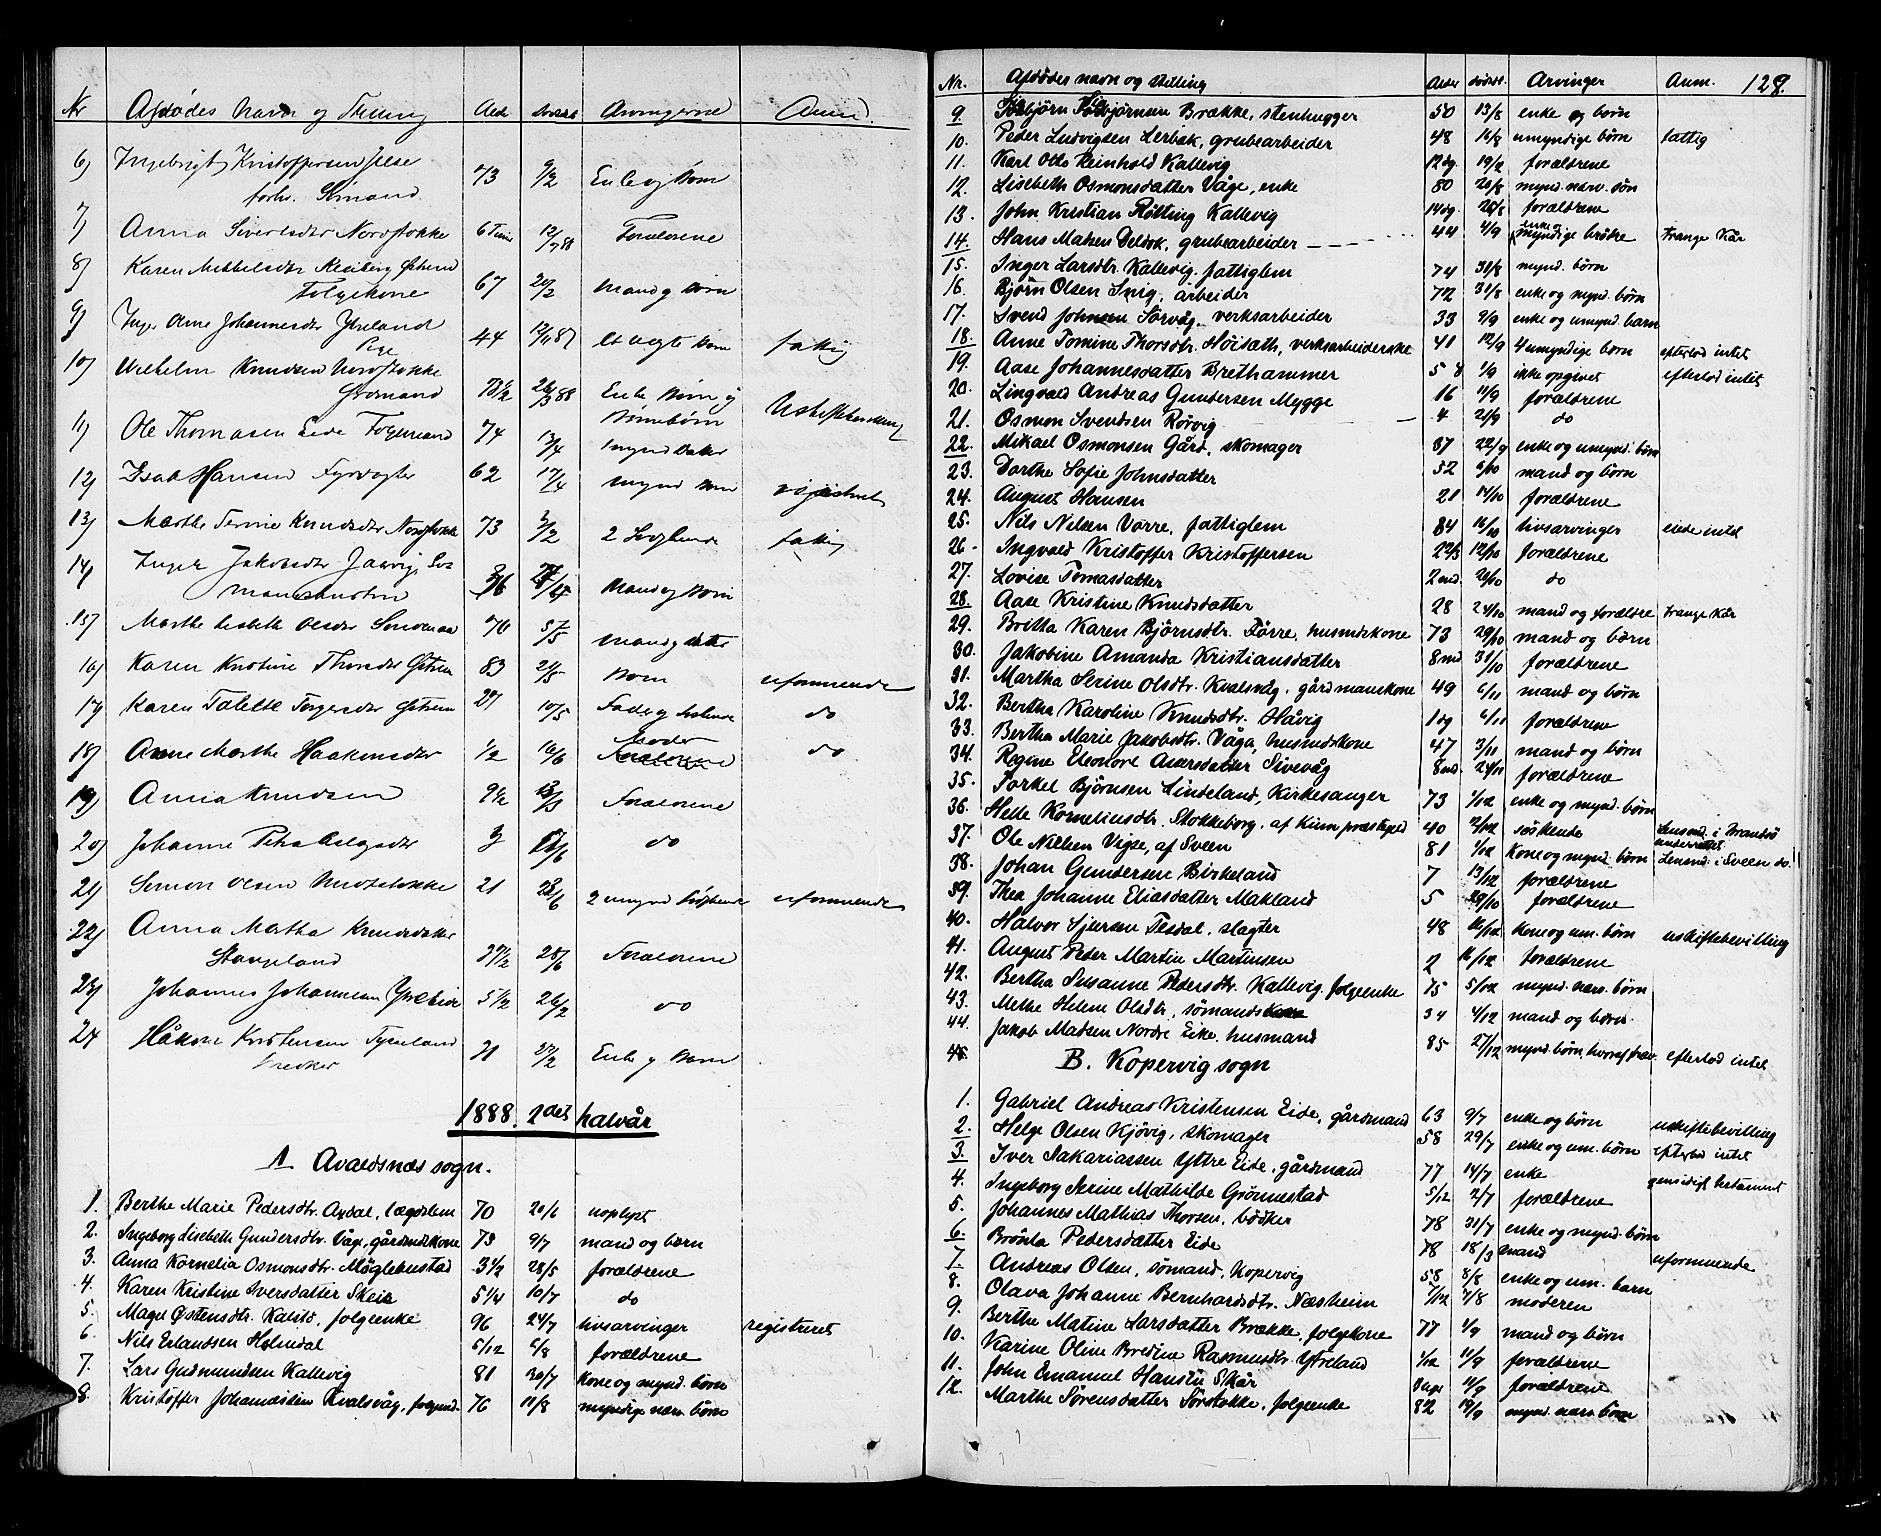 Nr Afdødes Navn og Stilling Alder Anm.
6) Ingebrigt Kristoffersen
forhv. Sømand 73 9/2 Enke og Børn
7) Anna Sivertsdtr Nordstokke 6 Timer 12/2 88 Forældrene
8) Karen
Folgekone 67 20/2 Mand og Børn
9) Inger Anne Johannesdtr Ytreland
Pige 44 12/11 87 et ægte Barn fattig
10) Vilhelm Knudsen Nordstokke
Gårdmand 78 1/2 Enke Børn og
Børnebørn
11) Ole Thomasen Eide Folgemand 74 12/4
12) Isak Hansen Fyrvogter 62 17/4 mynd Børn registreret
13) Marthe Serine Knudsdtr Nordstokke 73 2/2 2 Sødskende fattig
14) Inger Jakobsdtr
Mand og Børn
15) Marthe Lisbeth Olsdtr 70 5/5
16) Karen Kristine Thorsdtr 83 2/5 Børn uformuende
17) Karen Talette Torgersdtr 27 10/5 Fader og Sødskende do
18) Anne Marthe Haakonsdtr 1/2 10/6 Moder do
19) Anna Knudsen 9 1/2 Forældrene
20) Johanne Petra 3 do
21) Simon Olsen Midtstokke 21 28/6 2 umynd Sødskende uformuende
22) Anna Martha Knudsdatter
Stangeland 3 7/12 28/6 Forældrene
23) Johannes Johannesen 5 1/2 26/2 do
24 Håkon Kristensen
Snedker 71 27/2 Enke og Børn
1888. 2det halvår
A Avaldsnæs sogn.
1. Berthe Marie Pedersdtr. Axdal, lægdslem 70 20/6 uoplyst
2. Ingeborg Lisebeth Gundersdtr. Våge, gårdmdskone 73 9/7 mand og børn
3. Anna Kornelia Osmonsdtr. Møglebustad 3 1/2 28/5 forældrene
4. Karen Kristine Iversdatter Skeie 5 1/4 10/7 do
5. Magel Østensdtr. Kalstø, folgeenke 96 24/7 livsarvinger registreret
6. Nils Erlandsen Helmdal 5/12 6/8 forældrene
7. Lars Gudmundsen Kallevig 81 30/7 kone og mynd. børn
8. Kristoffer Johannessen Kvalsvåg, folgemd. 76 11/8 myndige nærv. børn
Nr. Afdødes navn og stilling Alder dødsd. Arvinger Anm. 128.
9. Torbjørn Torbjørnsen Brække, stenhugger 50 13/8 enke og børn
10. Peder Ludvigsen Lerbak, grubearbeider 48 16/8 umyndige børn fattig
11. Karl Otto Reinhold Kallevig 12 dg. 19/2 forældrene
12. Lisebeth Osmonsdatter Våge, enke 80 20/8 mynd. nærv. søn
13. John Kristian Røtting Kallevig 14 dg. 26/8 forældrene
14. Hans Matsen Delbek, grubearbeider 44 4/9 enke og myndige brødre trange kår
15. Inger Larsdtr. Kallevig, fattiglem 74 31/8 mynd. børn
16. Bjørn Olsen Snig, arbeider 72 31/8 enke og mynd. børn
17. Svend Johnsen Sørvåg, verksarbeider 33 9/9 enke og umynd. barn
18. Anne Tomine Thorsdtr. Høisæth, verksarbeiderske 41 12/9 4 umyndige børn efterlod intet
19. Aase Johannesdatter Brethammer 58 1/9 ikke opgivet efterlod intet
20. Lingvald Andreas Gundersen Mygge 16 11/9 forældrene
21. Osmon Svendsen Rørvig 4 21/9 do
22. Mikael Osmonsen Gård, skomager 37 22/9 enke og umynd. børn
23. Dorthe Sofie Johnsdatter 52 6/10 mand og børn
24. August Hansen 21 14/10 forældrene
25. Nils Nilsen Vorre, fattiglem 84 16/10 livsarvinger eiede intet
26. Ingvald Kristoffer Kristoffersen 2 2/3 12/10 forældrene
27. Lovise Tomasdatter 2 md. 20/10 do
28. Aase Kristine Knudsdatter 28 24/10 mand og forældre trange kår
29. Britha Karen Bjørnsdtr. Førre, husmdskone 73 29/10 mand og børn
30. Jakobine Amanda Kristiansdatter 8 md 31/10 forældrene
31. Martha Serine Olsdtr. Kvalsvåg, gårdmandskone 49 6/11 mand og børn
32. Bertha Karoline Knudsdtr. Håvig 1 dg 6/11 forældrene
33. Bertha Marie Jakobsdtr. Våga, husmdskone 47 3/11 mand og børn
34. Regine Eleonore Aasesdatter Sivevåg 8 md. 24/11 forældrene
35. Torkel Bjørnsen Lindeland, kirkesanger 73 1/12 enke og mynd. børn
36. Helle Korneliusdtr. Stokkeborg, af Kinn præstegjeld 40 2/12 søskende Lensmd. i Brandsø underrettet
37. Ole Nilsen Vigse, af Sveen 81 1/12 kone og mynd. børn Lensmd. i Sveen do.
38. Johan Gundersen Birkeland 7 13/12 forældrene
39. Thea Johanne Eliasdatter Makland 5 28/10 forældrene
40. Halvor Sjursen Tesdal, slagter 48 16/12 kone og um. børn uskiftebevilling
41. August Peder Martin Martinsen 2 16/12 forældrene
42. Bertha Susanne Pedersdtr. Kallevig, folgeenke 75 5/12 mynd. nærv. børn
43. Methe Helene Olsdtr., sømandskone 34 4/12 mand og børn.
44. Jakob Madsen Nordre Eike, husmand 85 27/12 mynd. børn, hvoraf efterlod intet
45. B. Kopervig sogn
1. Gabriel Andreas Kristensen Eide, gårdmand 63 9/7 enke og børn uskiftebevilling
2. Helge Olsen Kjøvig, skomager 58 29/7 enke og um. børn efterlod intet
3. Iver Sakariassen Yttre Eide, gårdmand 77 14/7 enke gensidigt testament
4. Ingeborg Serine Mathilde Grønnestad 5/12 2/7 forældrene
5. Johannes Mathias Thorsen, bødker 78 31/7 enke og mynd. børn
6. Brønla Pedersdatter Eide 78 18/3 mand uformuende
7. Andreas Olsen, sømand, Kopervig 58 8/8 enke og um. barn
8. Olava Johanne Bernhardsdtr. Næsheim 7/12 7/8 moderen
9. Berthe Matine Larsdatter Brække, folgekone 77 1/9 mand og børn
10. Karine Oline Bredine Rasmusdtr. Ytreland 1/12 11/9 forældrene
11. John Emanuel Hansen Skår 3 uger 11/9 forældrene
12. Marthe Sørensdatter Sørstokke, folgeenke 82 19/9 mynd. nærv. børn